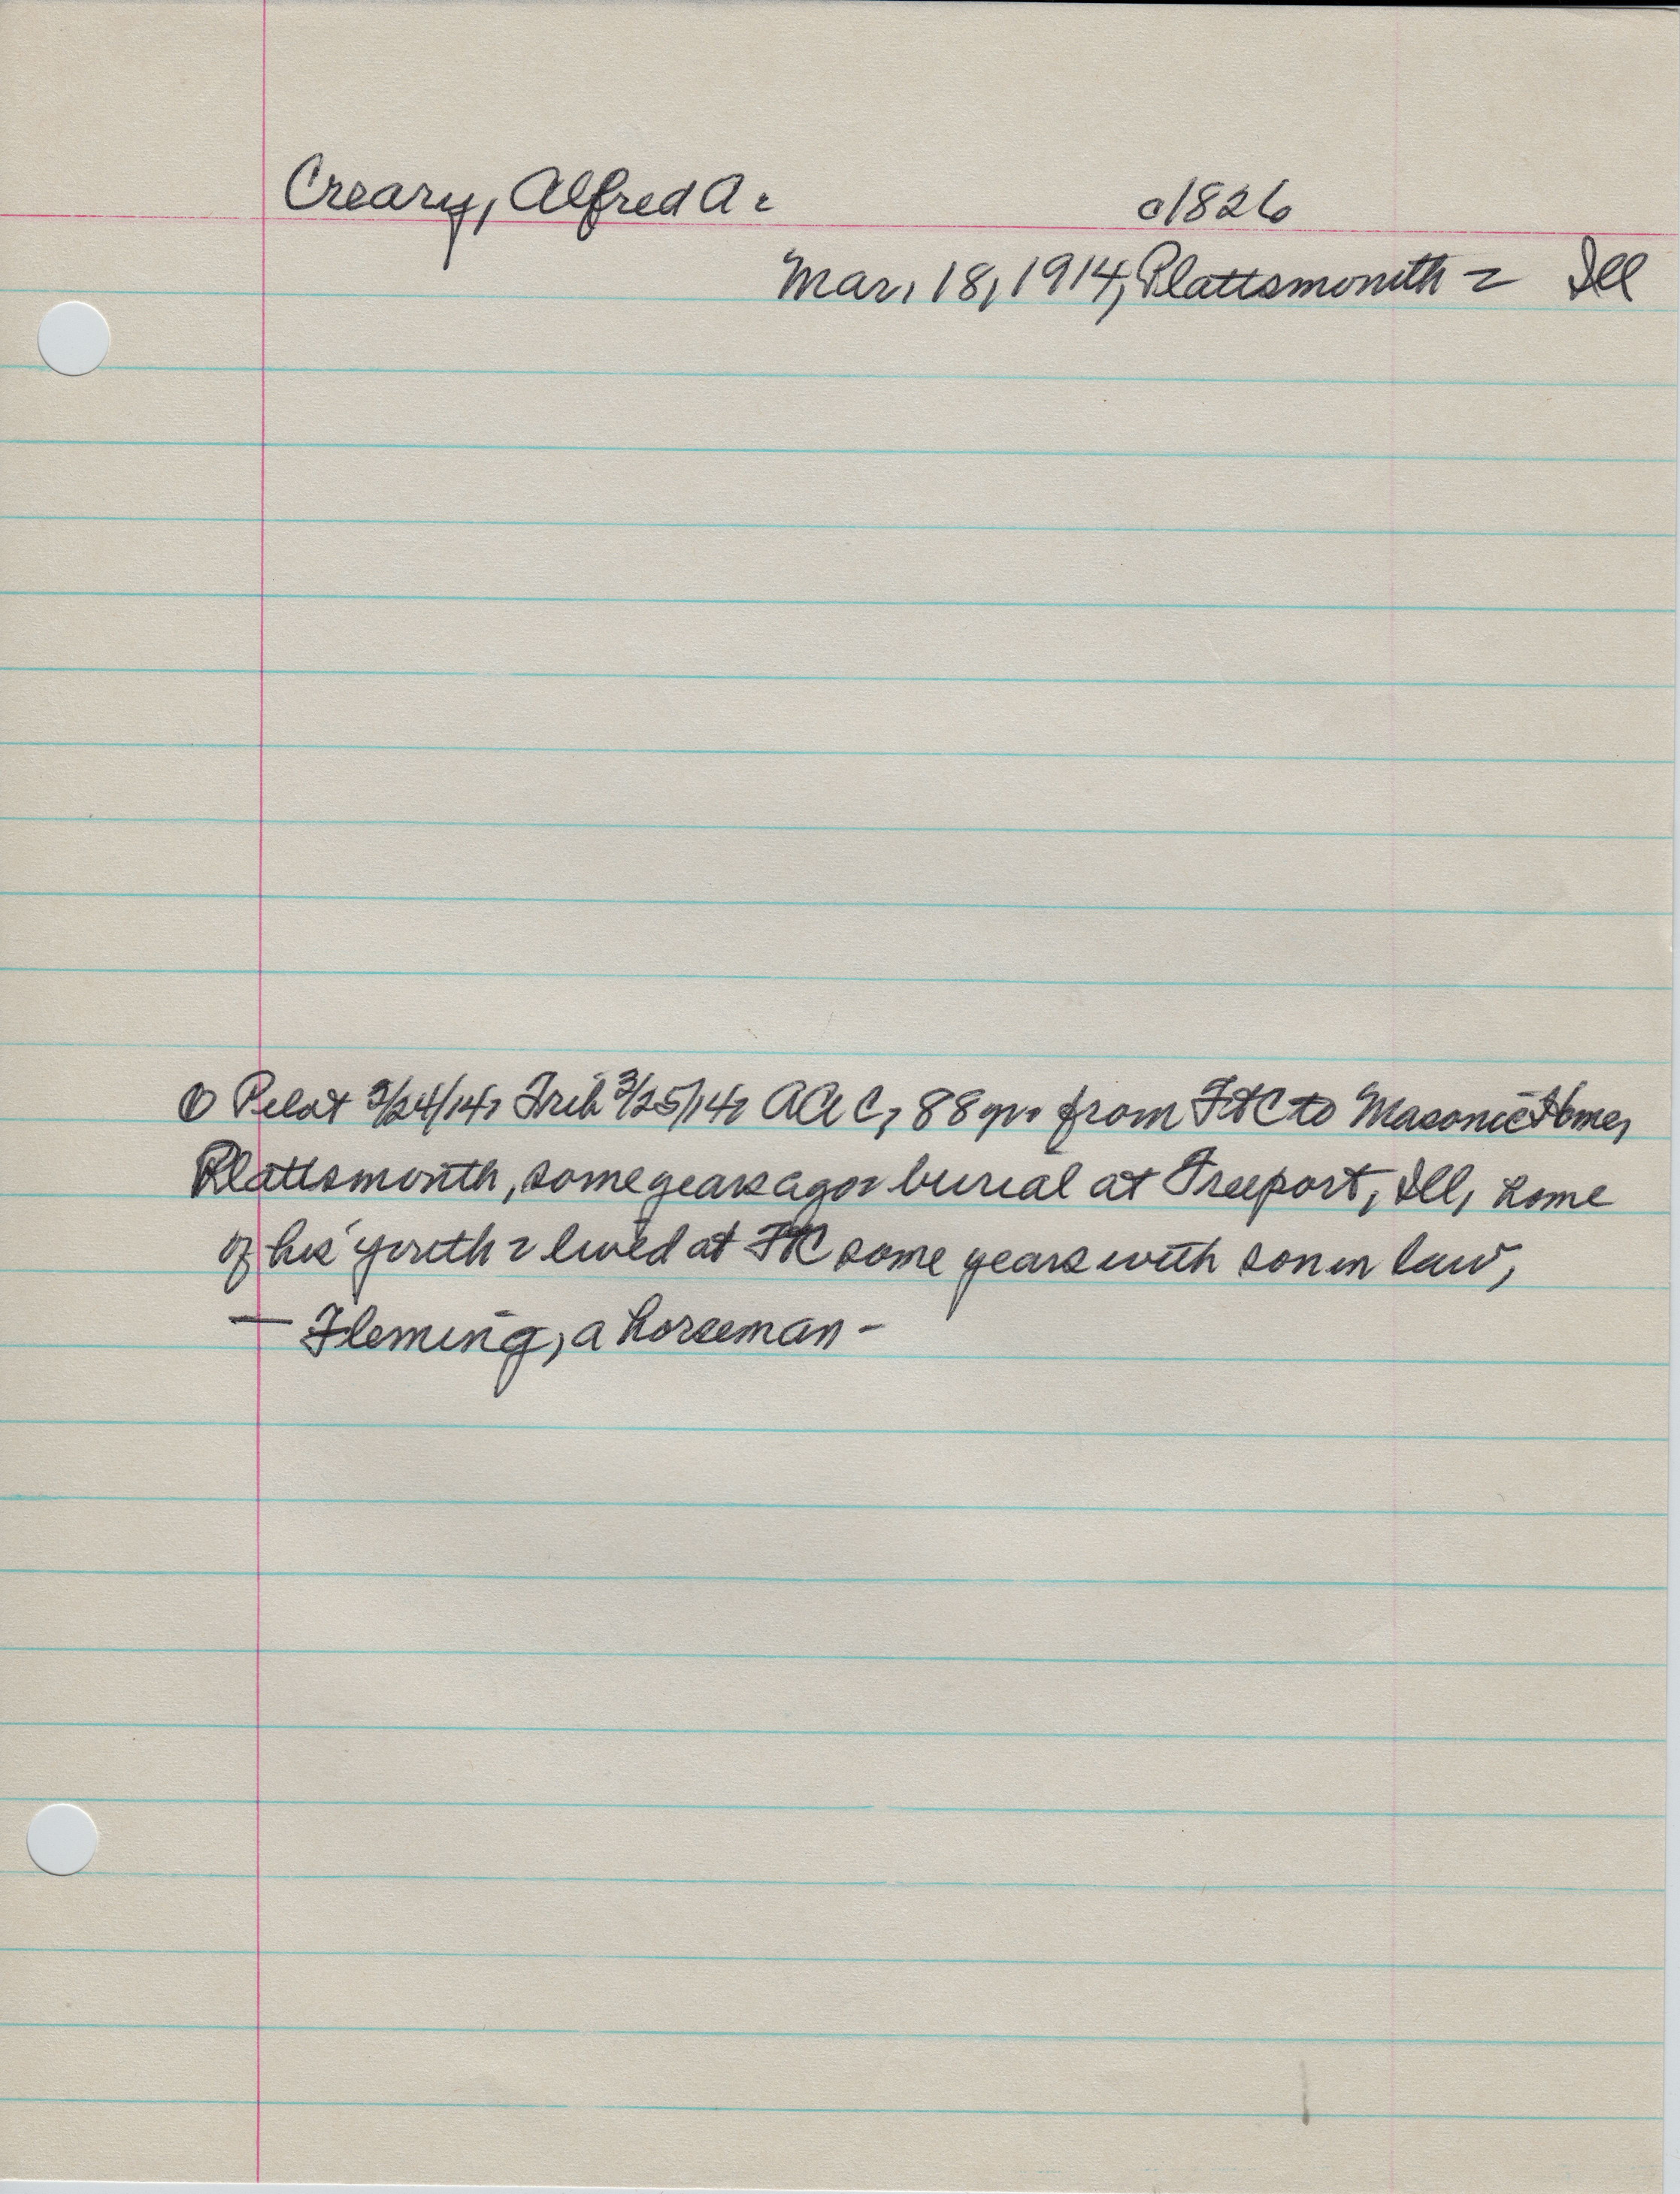 Creary, Alfred A. c1826
Mar. 18, 1914, Plattsmouth - Ill
① Pilot 3/24/14, Trib 3/25/14, AAC, 88 yr. from FC to Masonic Home,
Plattsmouth, some years ago - burial at Freeport, Ill, home
of his youth - lived at FC some years with son in law,
— Fleming, a horseman -